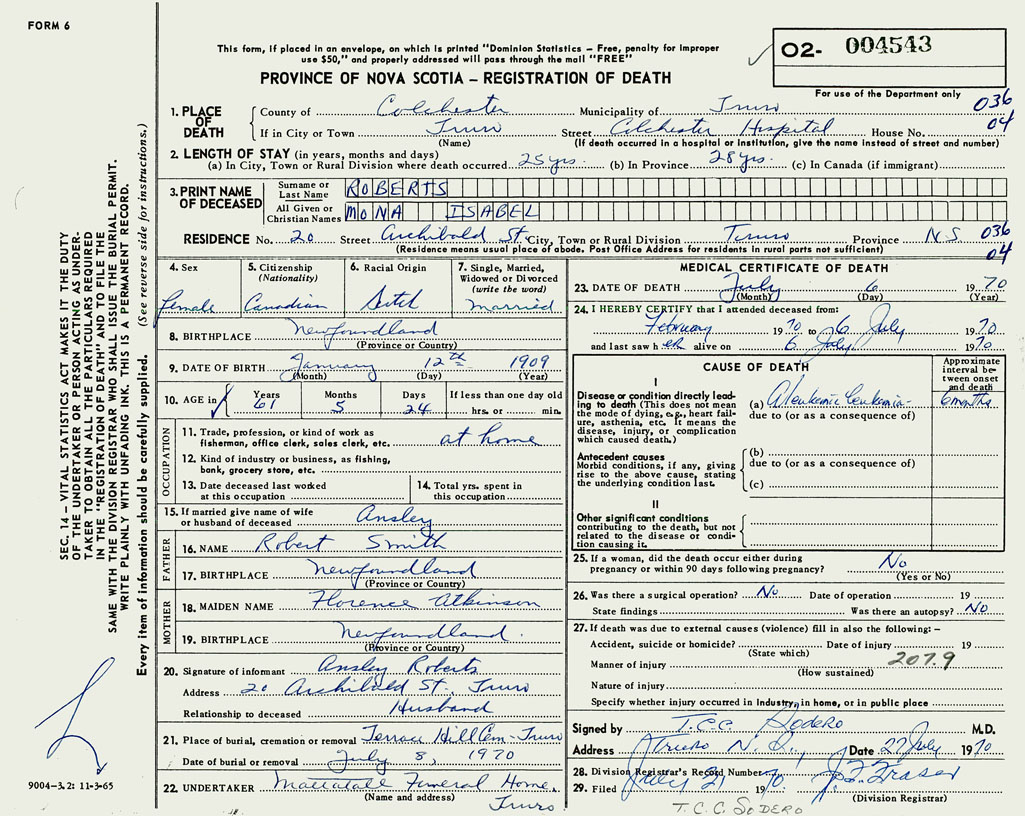 FORM 6
This form, if placed in an envelope, on which is printed "Dominion Statistics – Free, penalty for improper
use $50," and properly addressed will pass through the mail "FREE"
O2- 004543
PROVINCE OF NOVA SCOTIA – REGISTRATION OF DEATH
For use of the Department only
1. PLACE OF DEATH
County of Colchester Municipality of Truro 036
If in City or Town Truro Street Colchester Hospital House No. 04
(Name) (If death occurred in a hospital or institution, give the name instead of street and number)
2. LENGTH OF STAY (in years, months and days)
(a) In City, Town or Rural Division where death occurred 25 yrs. (b) In Province 28 yrs. (c) In Canada (if immigrant)
3. PRINT NAME OF DECEASED
Surname or Last Name ROBERTS
All Given or Christian Names MONA ISABEL
RESIDENCE No. 20 Street Archibald St. City, Town or Rural Division Truro Province N.S. 036
(Residence means usual place of abode. Post Office Address for residents in rural parts not sufficient) 04
4. Sex
female
5. Citizenship (Nationality)
Canadian
6. Racial Origin
7. Single, Married, Widowed or Divorced (write the word)
married
8. BIRTHPLACE Newfoundland
(Province or Country)
9. DATE OF BIRTH January 12th 1909
(Month) (Day) (Year)
10. AGE in Years 61 Months 5 Days 24 If less than one day old
hrs. or min.
OCCUPATION
11. Trade, profession, or kind of work as
fisherman, office clerk, sales clerk, etc. at home
12. Kind of industry or business, as fishing,
bank, grocery store, etc.
13. Date deceased last worked
at this occupation
14. Total yrs. spent in
this occupation
15. If married give name of wife
or husband of deceased Ansley
FATHER
16. NAME Robert Smith
17. BIRTHPLACE Newfoundland
(Province or Country)
MOTHER
18. MAIDEN NAME Florence Atkinson
19. BIRTHPLACE Newfoundland.
(Province or Country)
20. Signature of informant Ansley Roberts
Address 20 Archibald St., Truro
Relationship to deceased Husband
21. Place of burial, cremation or removal Terrace Hill Cem-Truro
Date of burial or removal July 8, 1970
22. UNDERTAKER Mattatall Funeral Home,
(Name and address) Truro
MEDICAL CERTIFICATE OF DEATH
23. DATE OF DEATH July 6 1970
(Month) (Day) (Year)
24. I HEREBY CERTIFY that I attended deceased from:
February 1970 to 6 July 1970
and last saw her alive on 6 July 1970
CAUSE OF DEATH
Approximate interval between onset and death
I
Disease or condition directly leading to death (This does not mean the mode of dying, e.g., heart failure, asthenia, etc. It means the disease, injury, or complication which caused death.)
(a) Aleukemic Leukemia 6 months
due to (or as a consequence of)
Antecedent causes
Morbid conditions, if any, giving rise to the above cause, stating the underlying condition last.
(b)
due to (or as a consequence of)
(c)
II
Other significant conditions
contributing to the death, but not related to the disease or condition causing it.
25. If a woman, did the death occur either during
pregnancy or within 90 days following pregnancy? No
(Yes or No)
26. Was there a surgical operation? No Date of operation 19
State findings Was there an autopsy? No
27. If death was due to external causes (violence) fill in also the following: –
Accident, suicide or homicide? Date of injury 19
(State which)
Manner of injury 207.9
(How sustained)
Nature of injury
Specify whether injury occurred in Industry, in home, or in public place
Signed by T.C.C. Sodero M.D.
Address Truro N.S., Date 27 July 1970
28. Division Registrar's Record Number
29. Filed July 21 1970 Fraser
(Division Registrar)
T.C.C. SODERO
SEC. 14 – VITAL STATISTICS ACT MAKES IT THE DUTY
OF THE UNDERTAKER OR PERSON ACTING AS UNDER-
TAKER TO OBTAIN ALL THE PARTICULARS REQUIRED
IN THE "REGISTRATION OF DEATH" AND TO FILE THE
SAME WITH THE DIVISION REGISTRAR WHO SHALL ISSUE THE BURIAL PERMIT.
WRITE PLAINLY WITH UNFADING INK. THIS IS A PERMANENT RECORD.
Every item of information should be carefully supplied. (See reverse side for instructions.)
9004-3.2: 11-3-65